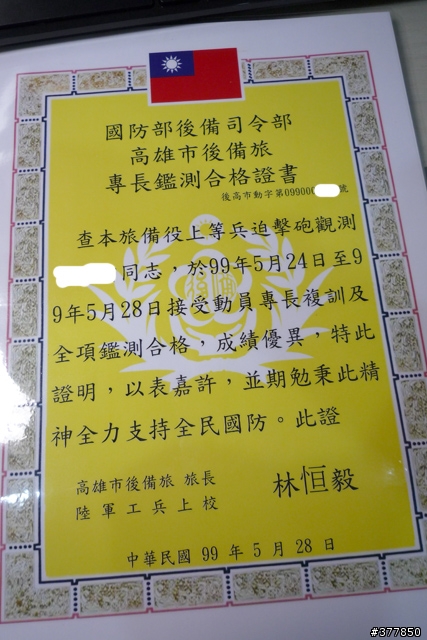 國防部後備司令部
高雄市後備旅
專長鑑測合格證書
後高市動字第099000 號
查本旅備役上等兵迫擊砲觀測
同志，於99年5月24日至9
9年5月28日接受動員專長複訓及
全項鑑測合格，成績優異，特此
證明，以表嘉許，並期勉秉此精
神全力支持全民國防。此證
高雄市後備旅 旅長
陸軍工兵上校
林恒毅
中華民國 99 年 5 月 28 日
#377850